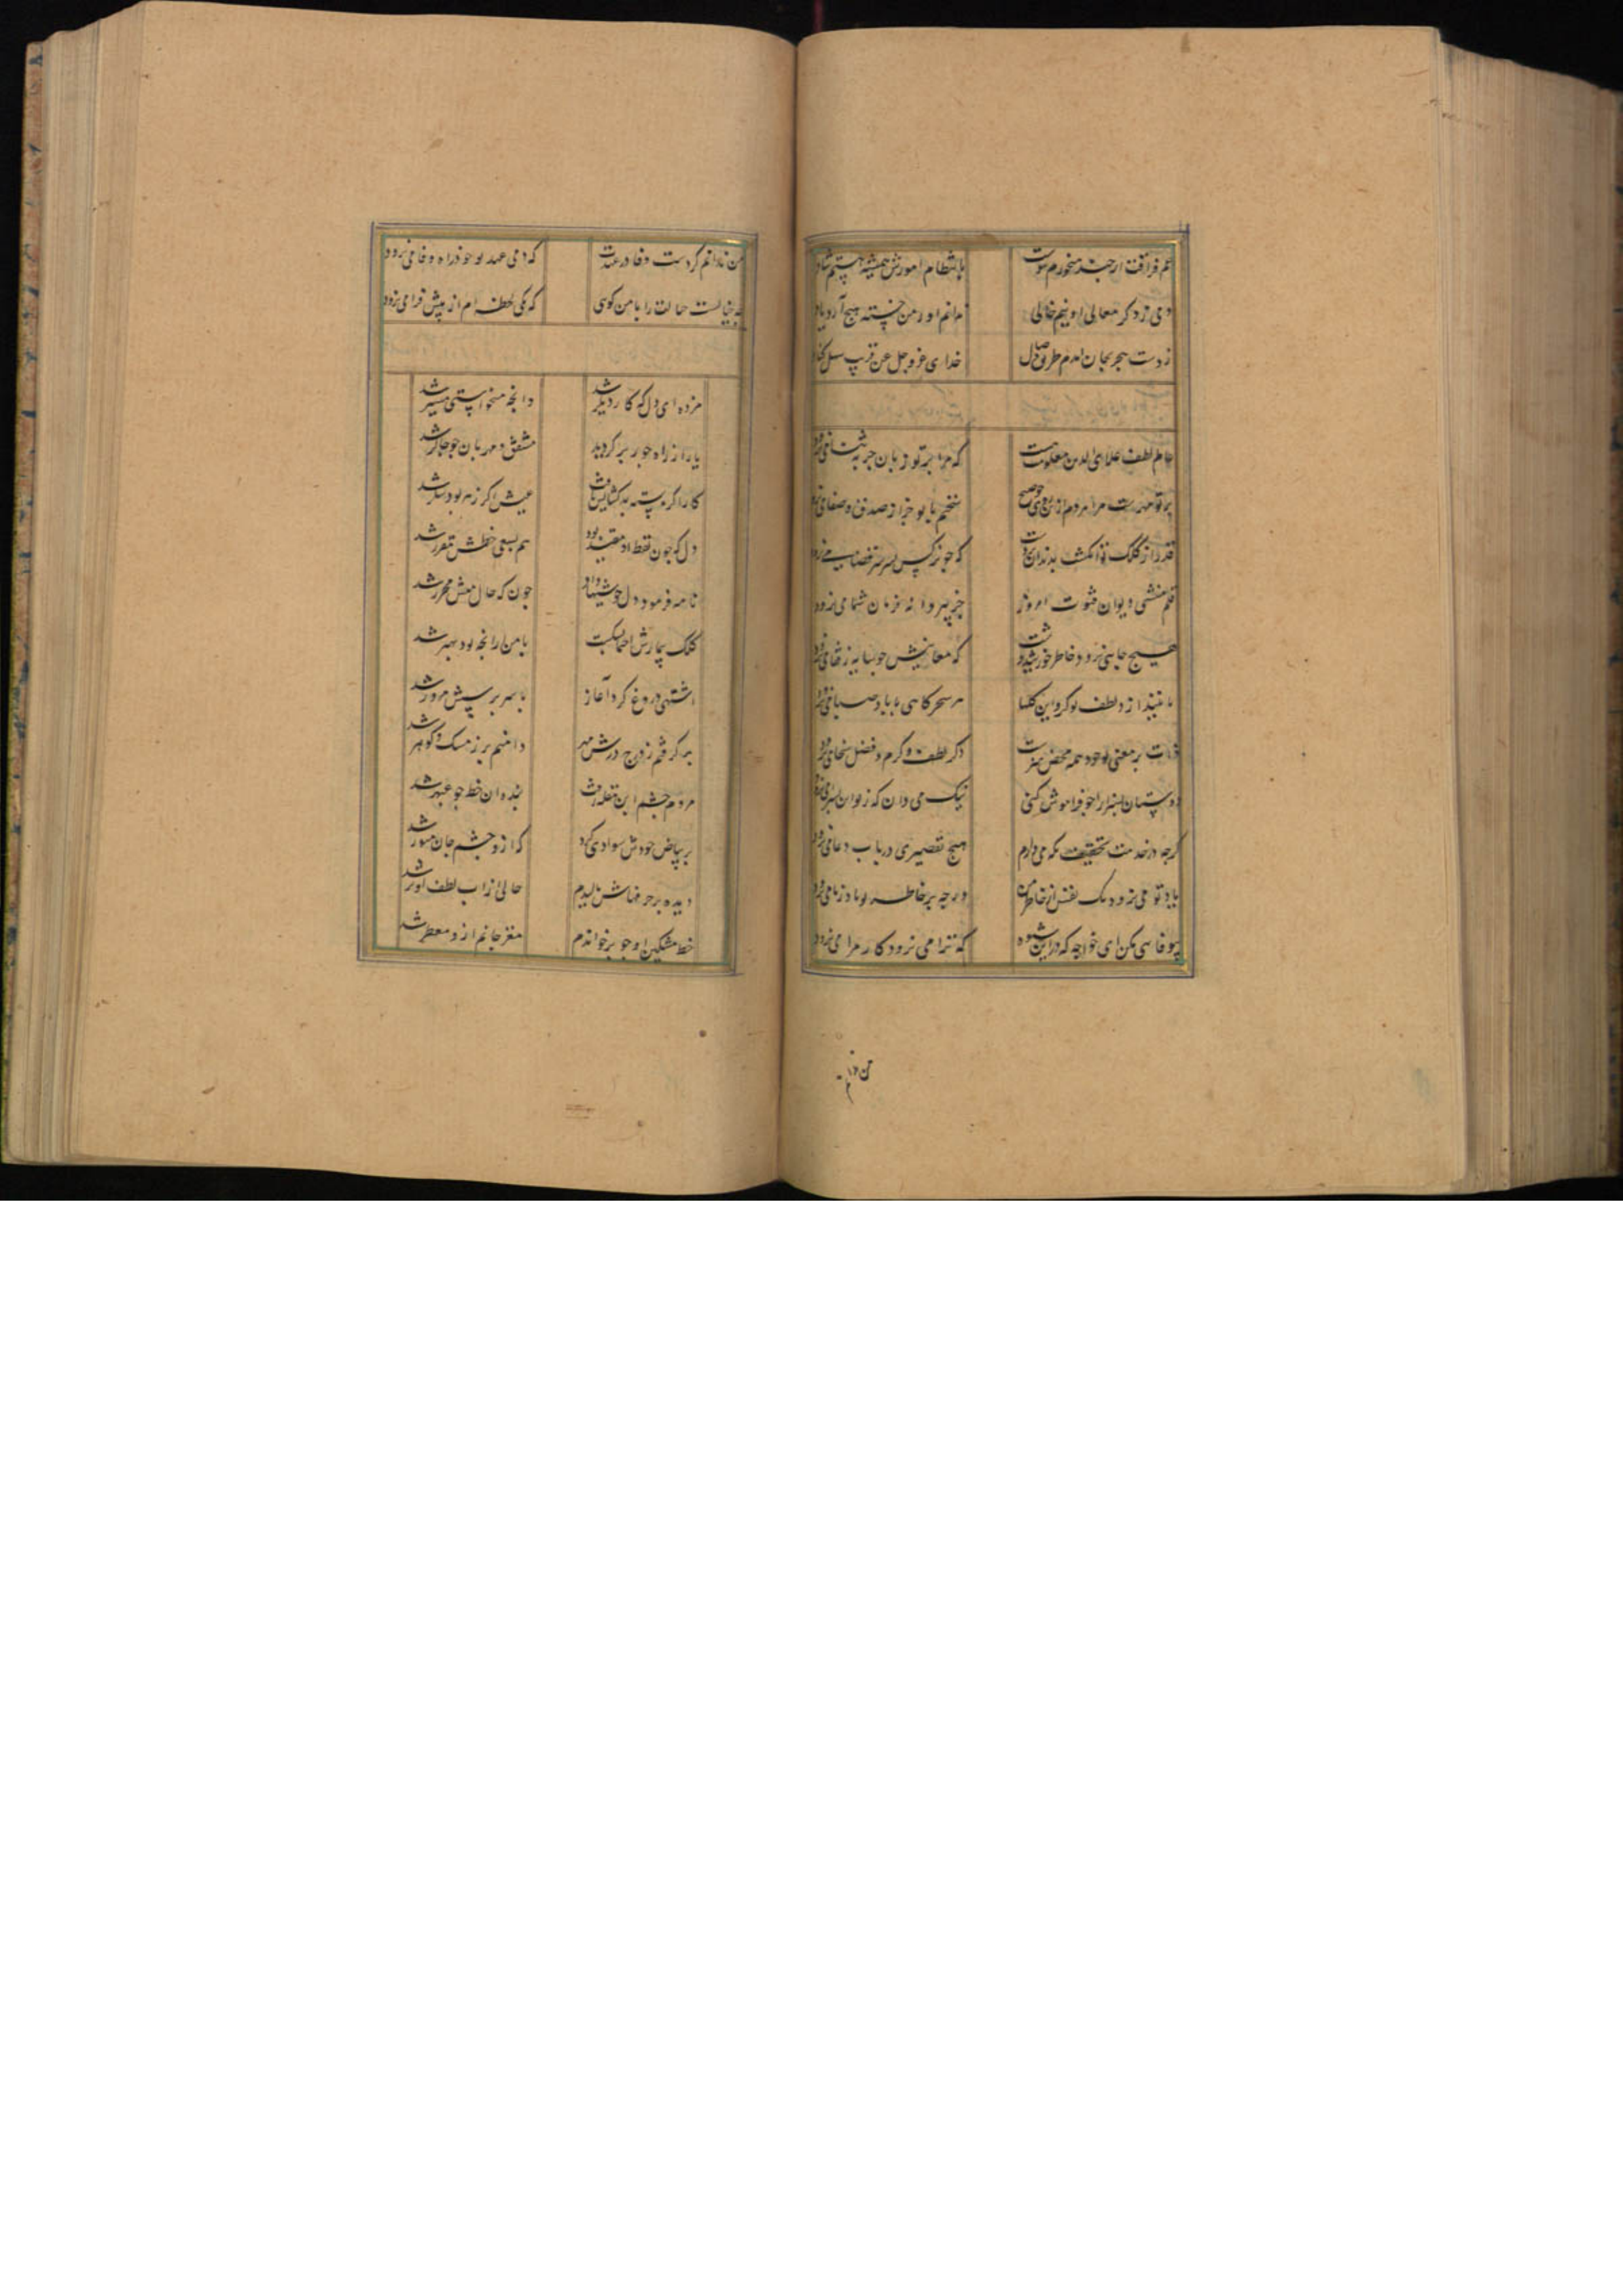 غم فراقت ارچند میخورم پیوست بانتظام امورش همیشه هستم شاد
دمی ز ذکر معالی او نیم خالی ندانم او ز من خسته هیچ آرد یاد
ز دست هجر بجان آمدم طریق وصال خدای عز و جل عن قریب سهل کناد
که مرا بر تو زبان جز به ثنا می نرود
بر تو مهریست مرا هردم از روی صحیح سخنم با تو جز از صدق و صفا می نرود
که چو نرکس بسر سر قضا می نرود
قلم منشی دیوان فتوت امروز جز به پروانه فرمان شما می نرود
هیچ جایی نرود خاطر خورشیدوشت که معانیش چو سایه ز قفا می نرود
هر سحرکاهی باد صبا می نرود
ذات پر معنی تو چون همه محض هنرست ذکر لطف و کرم و فضل و سخا می نرود
دوستان را چو فراموش کنی نیک می دان که ز یاران بسزا می نرود
کرچه در خدمت تخفیف نکه می دارم هیچ تقصیری در باب دعا می نرود
یاد تو می نرود یک نفس از خاطر من ورچه بر خاطر تو یاد ز ما می نرود
بیوفایی مکن ای خواجه که در این شیوه که ترا می نرود کار مرا می نرود
من ندانم
من ندانم کردست وفا در عهدت که دمی عهد تو خود راه وفا می نرود
به خیالت حالت را با من کوی که یکی لحظه ام از پیش فرا می نرود
مژده ای دل که کار دیکر شد وانچه میخواستی میسر شد
یار از راه جور بر کردید مشفق و مهربان چو چاکر شد
کار اکر بسته بد کشایش یافت عیش اکر زهر بود شکر شد
دل که چون نقطه او مقید بود هم بسعی خطش مقرر شد
نامه فرمود و دل خوشیها داد چون که حال منش محرر شد
کلک بیمارش احتما بشکست با من ارانچه بود بهتر شد
اشتهی دروغ کرد آغاز با سر پرسش مزور شد
بر کرفتم ز درج درش مهر دامنم پر ز مشک و کوهر شد
مردم چشم این مقله رفت بنده آن خط چو عنبر شد
بر بیاض خودش سوادی کرد که ازو چشم جان منور شد
دیده بر حرفهاش نالیدم حالی از آب لطف او تر شد
خط مشکین او چو بر خواندم مغز جانم ازو معطر شد